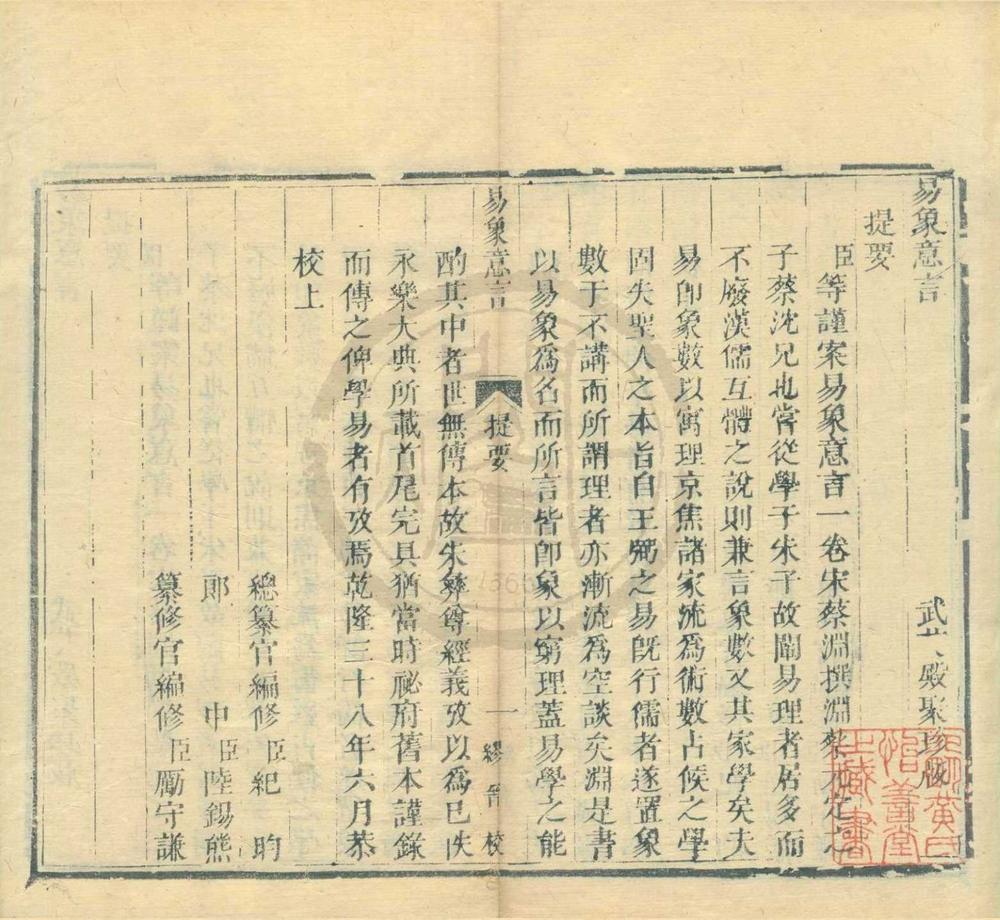 易象意言 武 殿聚珍版
提要
臣等謹案易象意言一卷宋蔡淵撰淵蔡元定之
子蔡沈兄也嘗從學于朱子故闡易理者居多而
不廢漢儒互體之說則兼言象數又其家學矣夫
易卽象數以寓理京焦諸家流爲術數占候之學
固失聖人之本旨自王弼之易旣行儒者遂置象
數于不講而所謂理者亦漸流爲空談矣淵是書
以易象爲名而所言皆卽象以窮理蓋易學之能
易象意言 提要 一 繆晉校
酌其中者世無傳本故朱彝尊經義攷以爲已佚
永樂大典所載首尾完具猶當時祕府舊本謹錄
而傳之俾學易者有攷焉乾隆三十八年六月恭
校上
總纂官編修臣紀昀
郞中臣陸錫熊
纂修官編修臣勵守謙